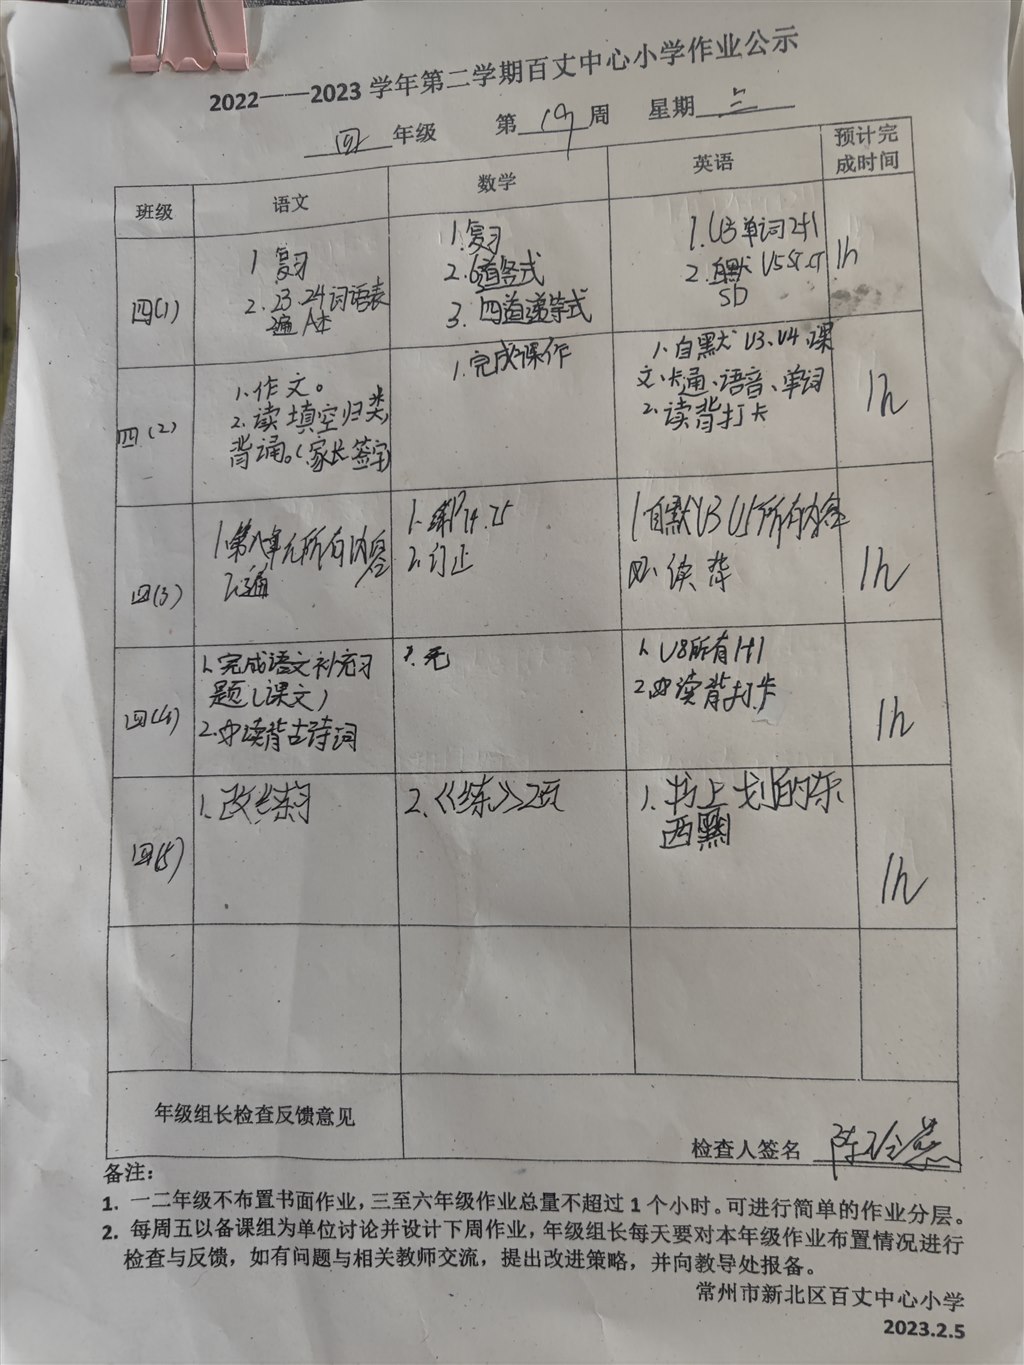 2022——2023 学年第二学期百丈中心小学作业公示
四 年级 第 19 周 星期 三
班级 语文 数学 英语 预计完成时间
四(1)
1 复习
2. 23. 24 词语表
遍 A本
1. 复习
2. 6道竖式
3. 四道递等式
1. U3 单词 2+1
2. 自默 U5 ST. CT
SD
1h
四(2)
1. 作文。
2. 读填空归类,
背诵。(家长签字)
1. 完成课作
1. 自默 U3、U4 课
文、卡通、语音、单词
2. 读背打卡
1h
四(3)
1 第八单元所有内容
一遍
1. 练P74. 75
2. 订止
1 自默U3 U5所有内容
读 背
1h
四(4)
1. 完成语文补充习
题(课文)
2. 读背古诗词
1. 无
1. U8所有1+1
2. 读背打卡
1h
四(5)
1. 改练习
2.《练》2页
1. 书上划的东
西默
1h
年级组长检查反馈意见
检查人签名
备注:
1. 一二年级不布置书面作业，三至六年级作业总量不超过 1 个小时。可进行简单的作业分层。
2. 每周五以备课组为单位讨论并设计下周作业，年级组长每天要对本年级作业布置情况进行
检查与反馈，如有问题与相关教师交流，提出改进策略，并向教导处报备。
常州市新北区百丈中心小学
2023.2.5